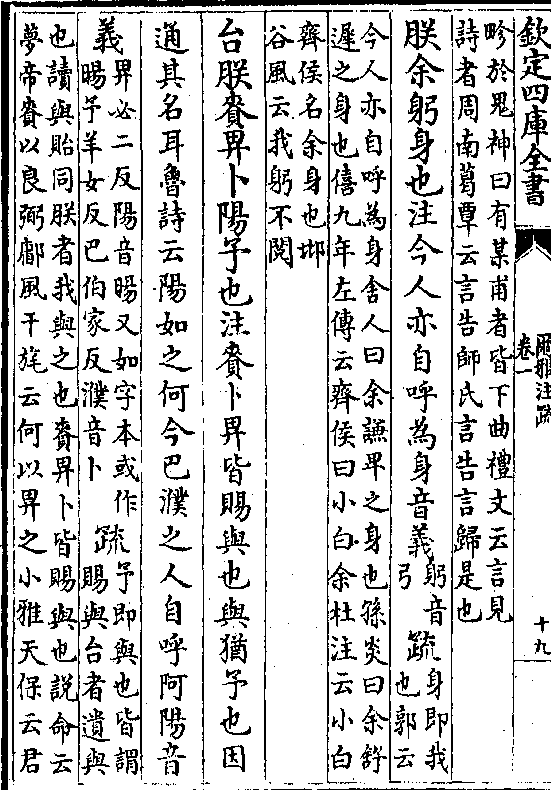 欽定四庫全書
爾雅注疏
卷一
十九
畛於鬼神曰有某甫者皆下曲禮文云言見
詩者周南葛覃云言告師氏言告言歸是也
朕余躬身也注今人亦自呼為身音義躬音弓疏身即我也郭云
今人亦自呼為身舍人曰余謙卑之身也孫炎曰余舒
遲之身也僖九年左傳云齊侯曰小白余杜注云小白
齊侯名余身也邶
谷風云我躬不閱
台朕賚畀卜陽予也注賚卜畀皆賜與也與猶予也因
通其名耳魯詩云陽如之何今巴濮之人自呼阿陽音
義畀必二反陽音暘又如字本或作暘予羊女反巴伯家反濮音卜疏予即與也皆謂賜與台者遺與
也讀與貽同朕者我與之也賚畀卜皆賜與也說命云
夢帝賚以良弼鄘風干旄云何以畀之小雅天保云君